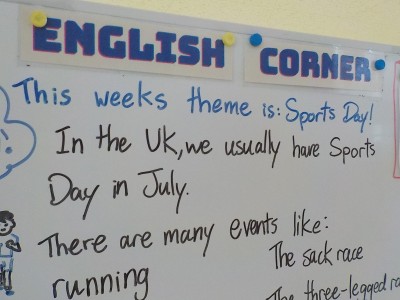 ENGLISH CORNER
This weeks theme is: Sports Day!
In the UK, we usually have Sports
Day in July.
There are many events like:
The sack race
running
The three-legged